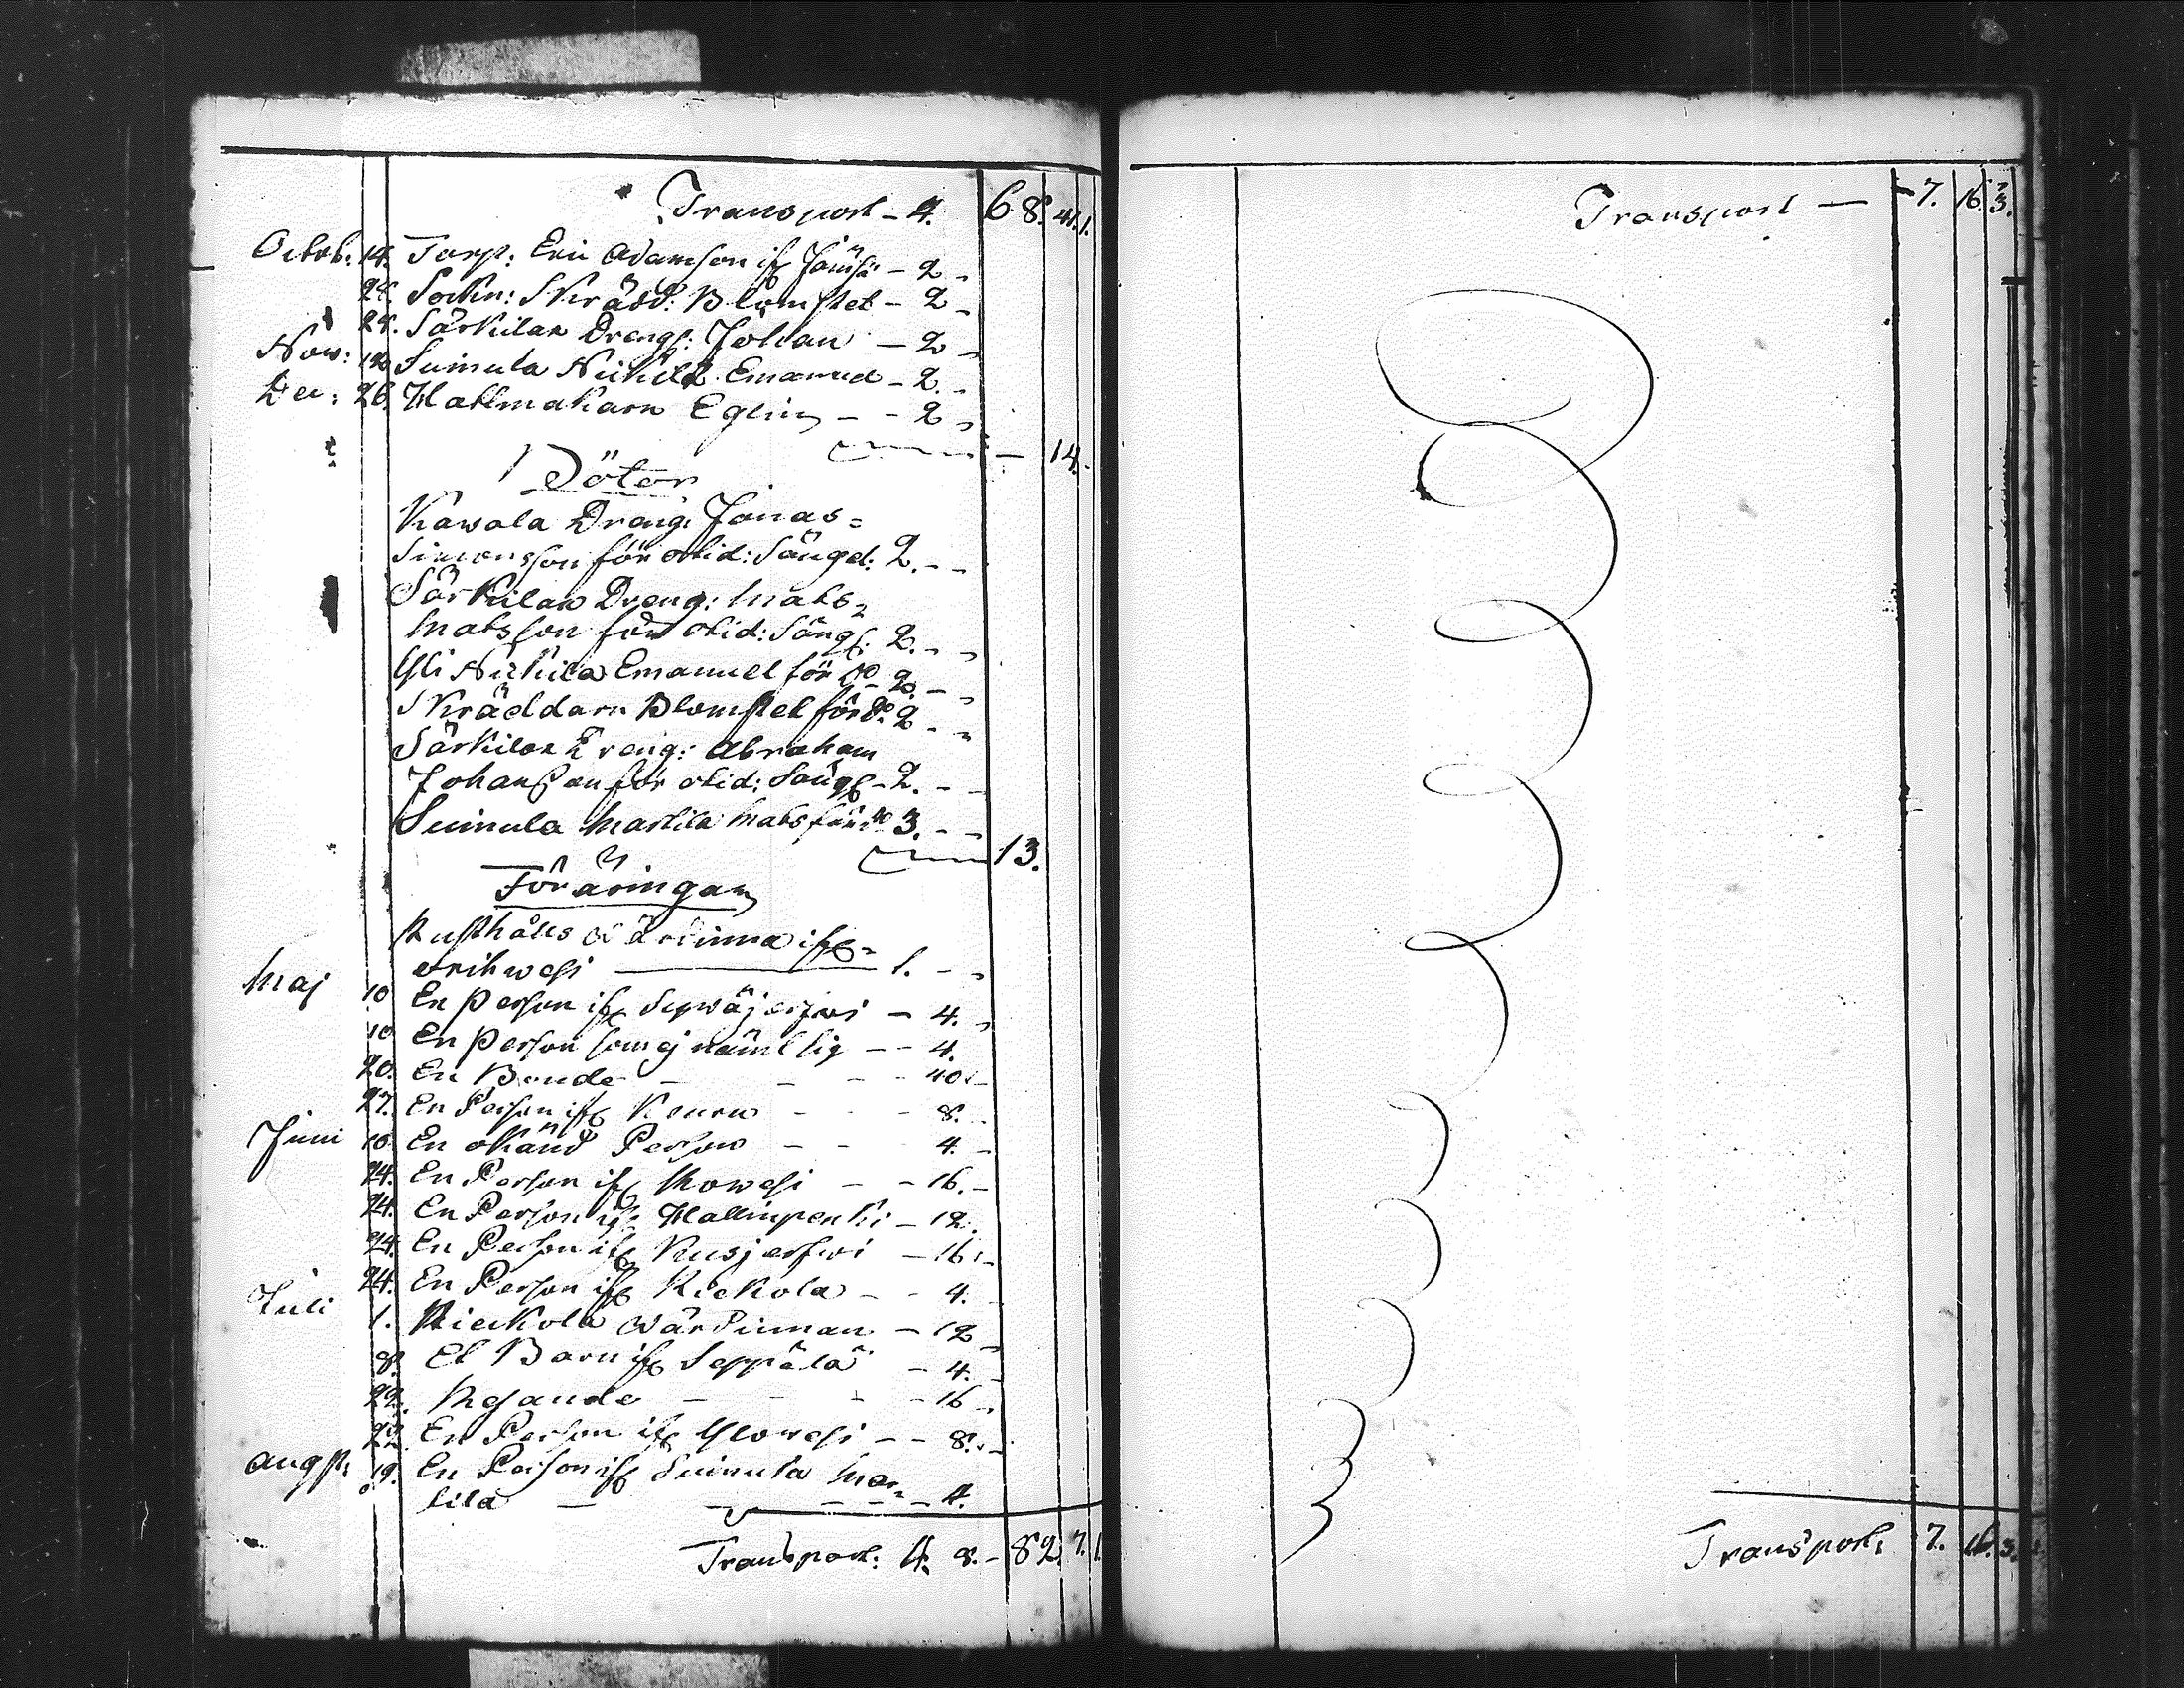 Transport - 4. 68. 41. 1.
Octob: 14. Torp: Eric Adamson if Jämsä - 2 -
28. Sockn: Skrädd: Blomstet - 2 -
28. Särkilax Drengs: Johan - 2 -
Nov: 12 Suinula Nickilä Emanuel - 2. -
Dec: 26. Hattmakarn Eglin - - 2 -
- 14.
Böter
Kawala Dreng: Jonas =
Simonsson för otid: Sängel: 2. - -
Särkilax Dreng: Mats =
Matsson för otid: Sängl: 2. - -
Yli Nickilä Emanuel för do - 2. - -
Skräddarn Blomstet för do. 2 - -
Särkilax Dreng: Abraham
Johansson för otid: Sängl - 2. - -
Suinula Martila Mats för do 3. - -
13.
Föräringar
Rusthålls Wärdinna if =
Orihwesi 1. - -
Maj 10 En Person if - 4. -
10 En Person som ej nämt sig - - 4.
20. En Bonde - - - - 40. -
27. En Person if Keuru - - - 8. -
Juni 10. En okänd Person - - 4. -
24. En Person if - - 16. -
24. En Person if Hallinpenki - 12.
24. En Person if Kusjerfwi - 16. -
24. En Person if Rickola - - 4. -
Juli 1. Rieckola Wärdinnan - 12 -
8. Et Barn if Seppälä - 4. -
22. Resande - - - - 16 -
22. En Person if Ylowesi - - 8. -
Augst: 19. En Person if Suinula Mar=
tila - - - - - 4.
Transport: 4. 8. - 82. 7. 1.
Transport - 7. 16. 3.
Transport: 7. 16. 3.